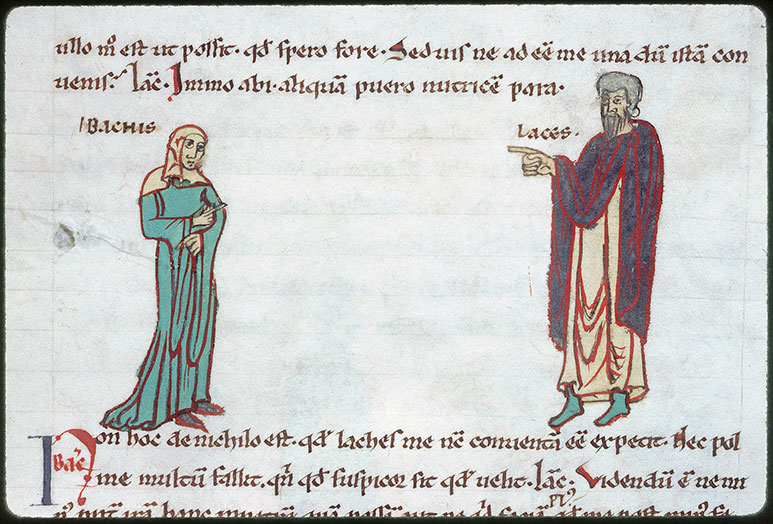 ullo m̅ est ut possit· qd̅ spero fore· Sed uis ne ad eē me una dū istā con
uenis? Lac̅· Immo abi· aliquā puero nutricē para·
BACHIS
LACES·
Non hoc de nichilo est· qd̅ laches me nc̅ conuentā eē expetit· Nec pol
Bac̅
me multū fallit· qn̅ qd̅ suspicor sit qd̅ uelit· Lac̅· Videndū ē ne